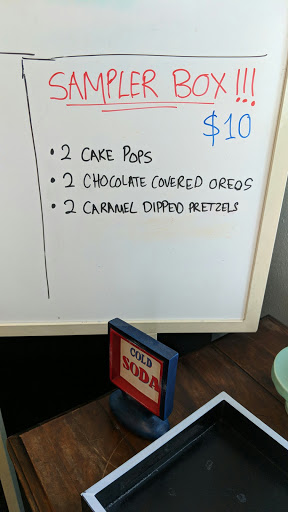 SAMPLER BOX!!!
$10
• 2 CAKE POPS
• 2 CHOCOLATE COVERED OREOS
• 2 CARAMEL DIPPED PRETZELS
COLD
SODA